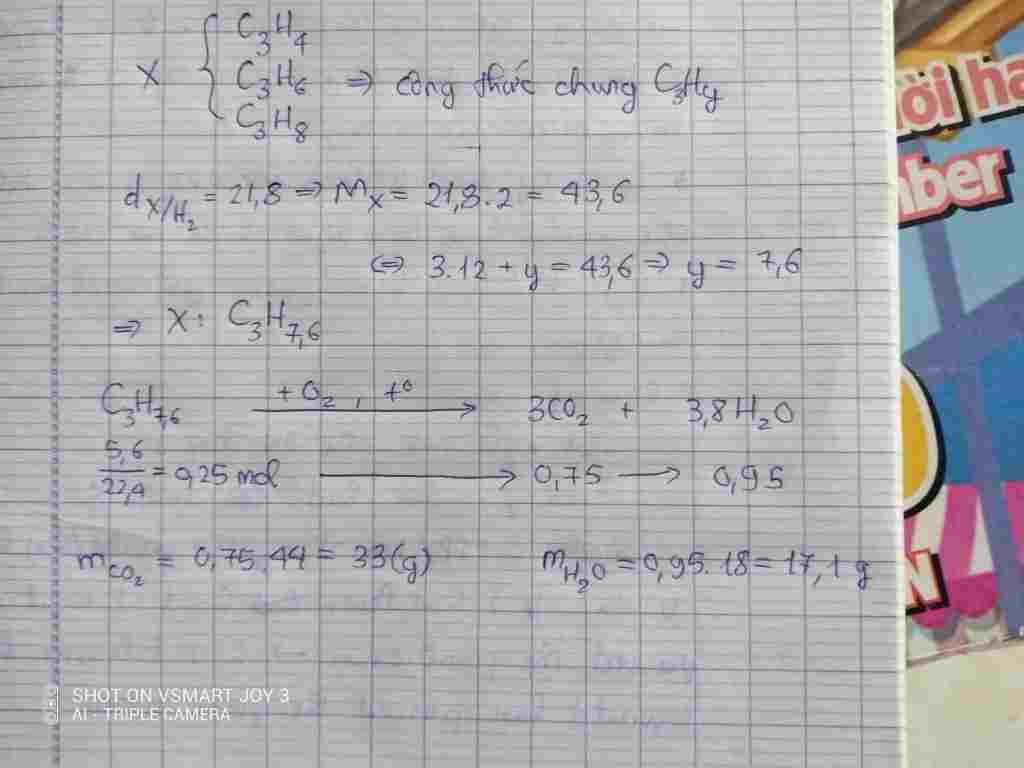 C3H4
X { C3H6 => công thức chung C3Hy
C3H8
dX/H2 = 21,8 => MX = 21,8.2 = 43,6
<=> 3.12 + y = 43,6 => y = 7,6
=> X: C3H7,6
C3H7,6 + O2, t° → 3CO2 + 3,8H2O
5,6/22,4 = 0,25 mol → 0,75 → 0,95
mCO2 = 0,75.44 = 33(g) mH2O = 0,95.18 = 17,1 g
SHOT ON VSMART JOY 3
AI - TRIPLE CAMERA
ber